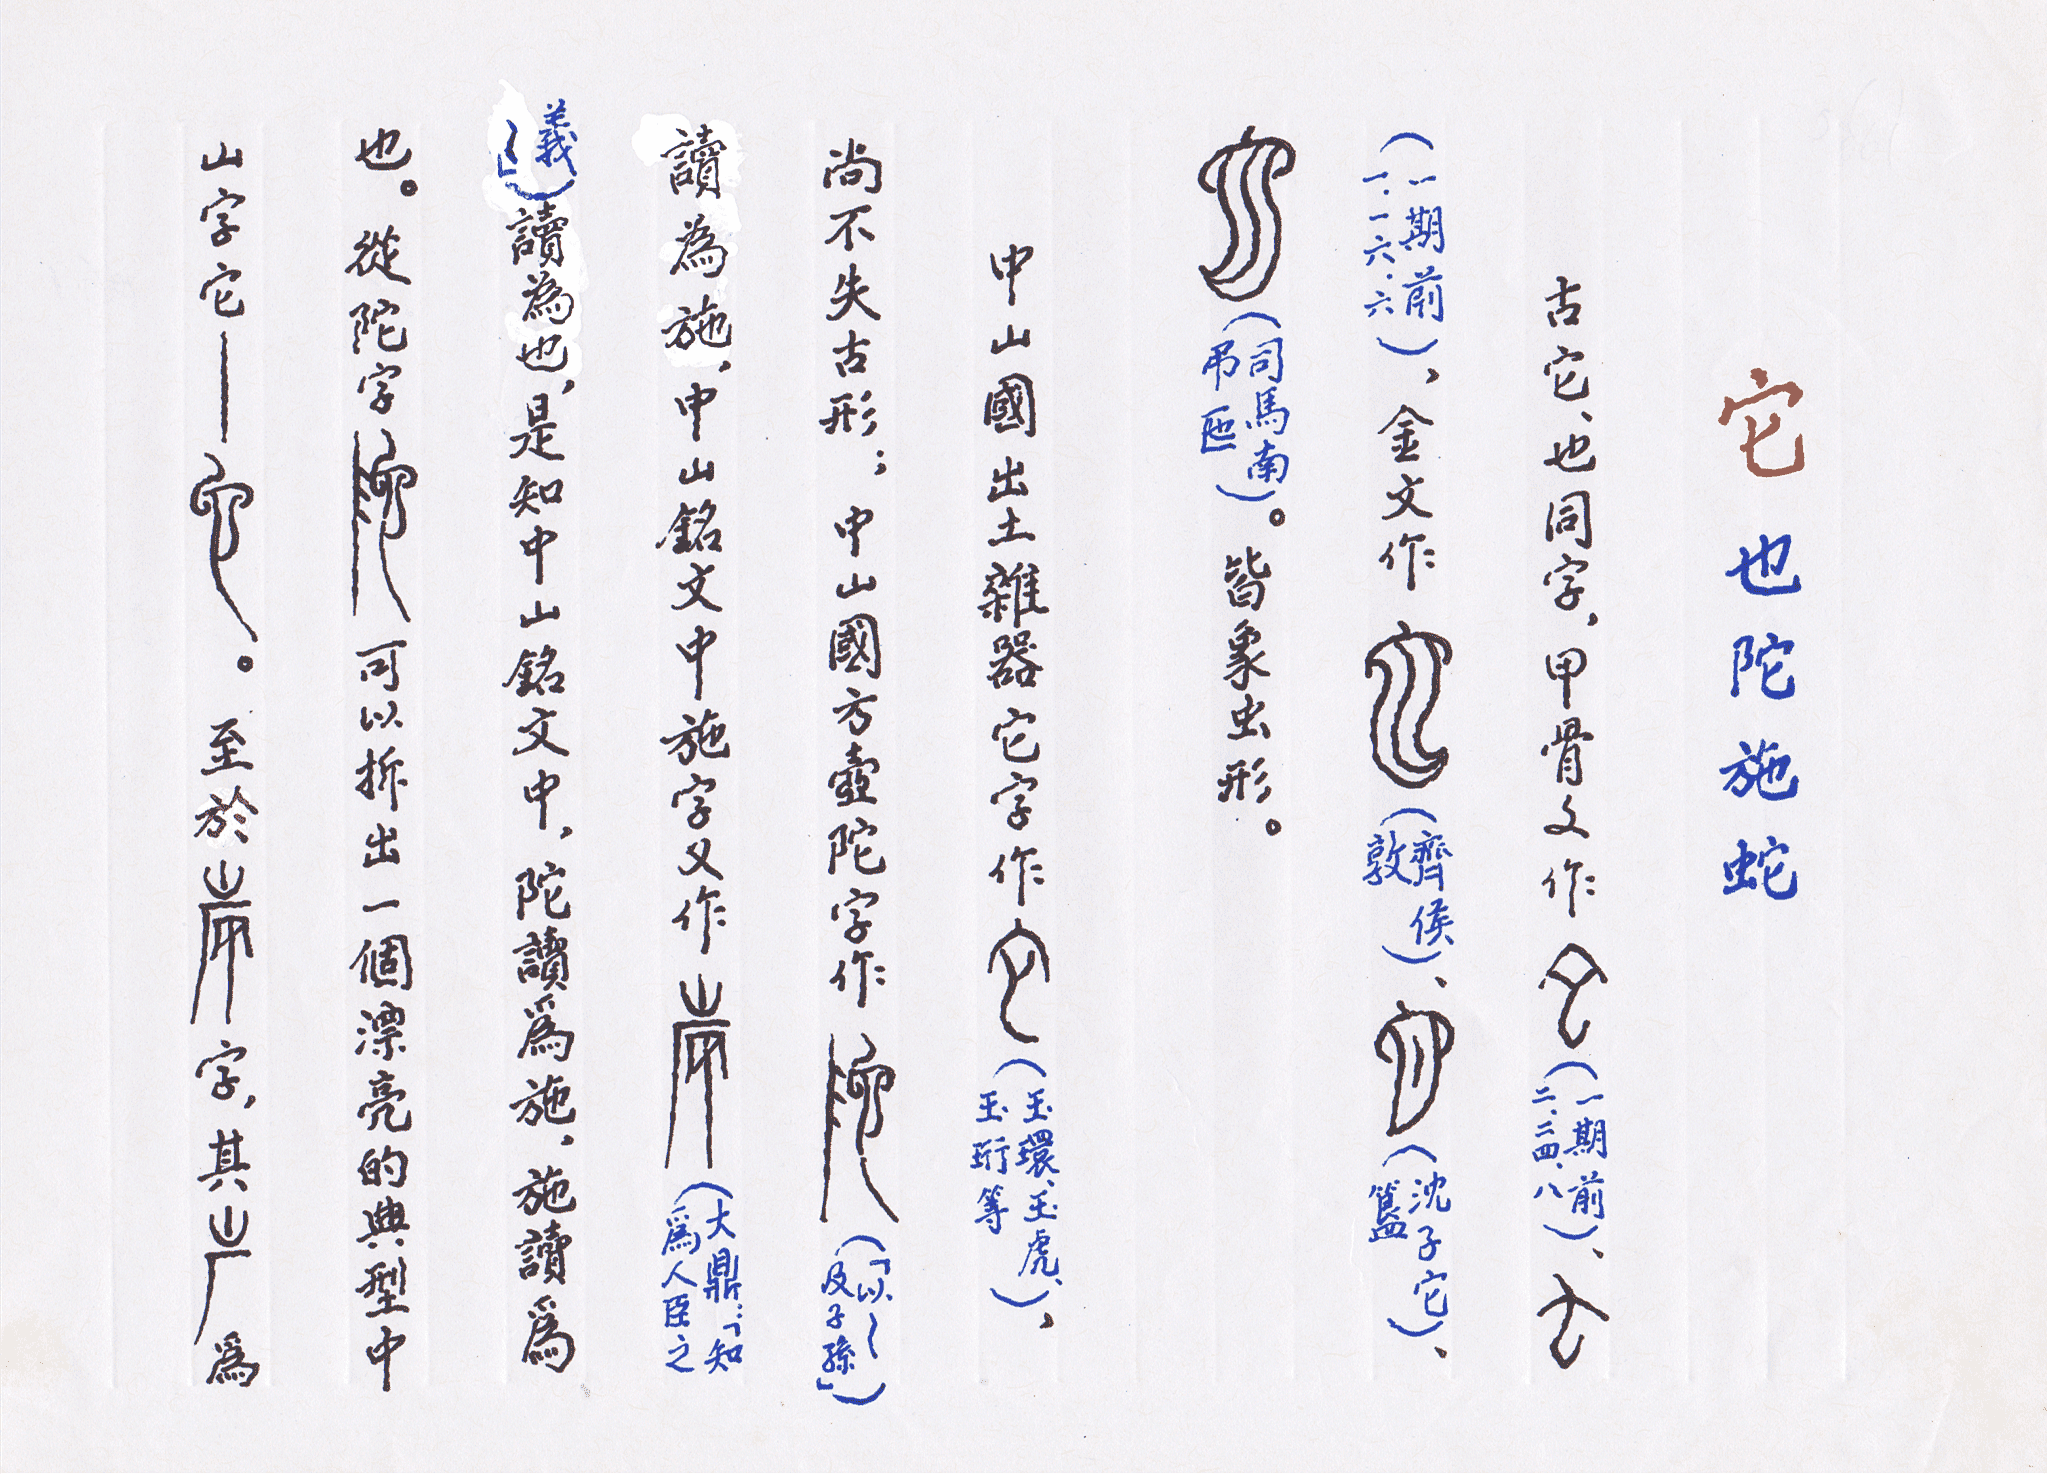 它也陀施蛇
古它、也同字,甲骨文作(一期前二、二四、八)、
(一期前一.一六.六)、金文作(齊侯敦)、(沈子它簋)、
(司馬南弔匜)。皆象虫形。
中山國出土雜器它字作(玉環、玉虎、玉珩等)、
尚不失古形;中山國方壺陀字作(「以~及子孫」)
讀為施,中山銘文中施字又作(大鼎:「知為人臣之
義~」)讀為也,是知中山銘文中,陀讀為施,施讀為
也。從陀字可以拆出一個漂亮的典型中
山字它——。至於字,其為